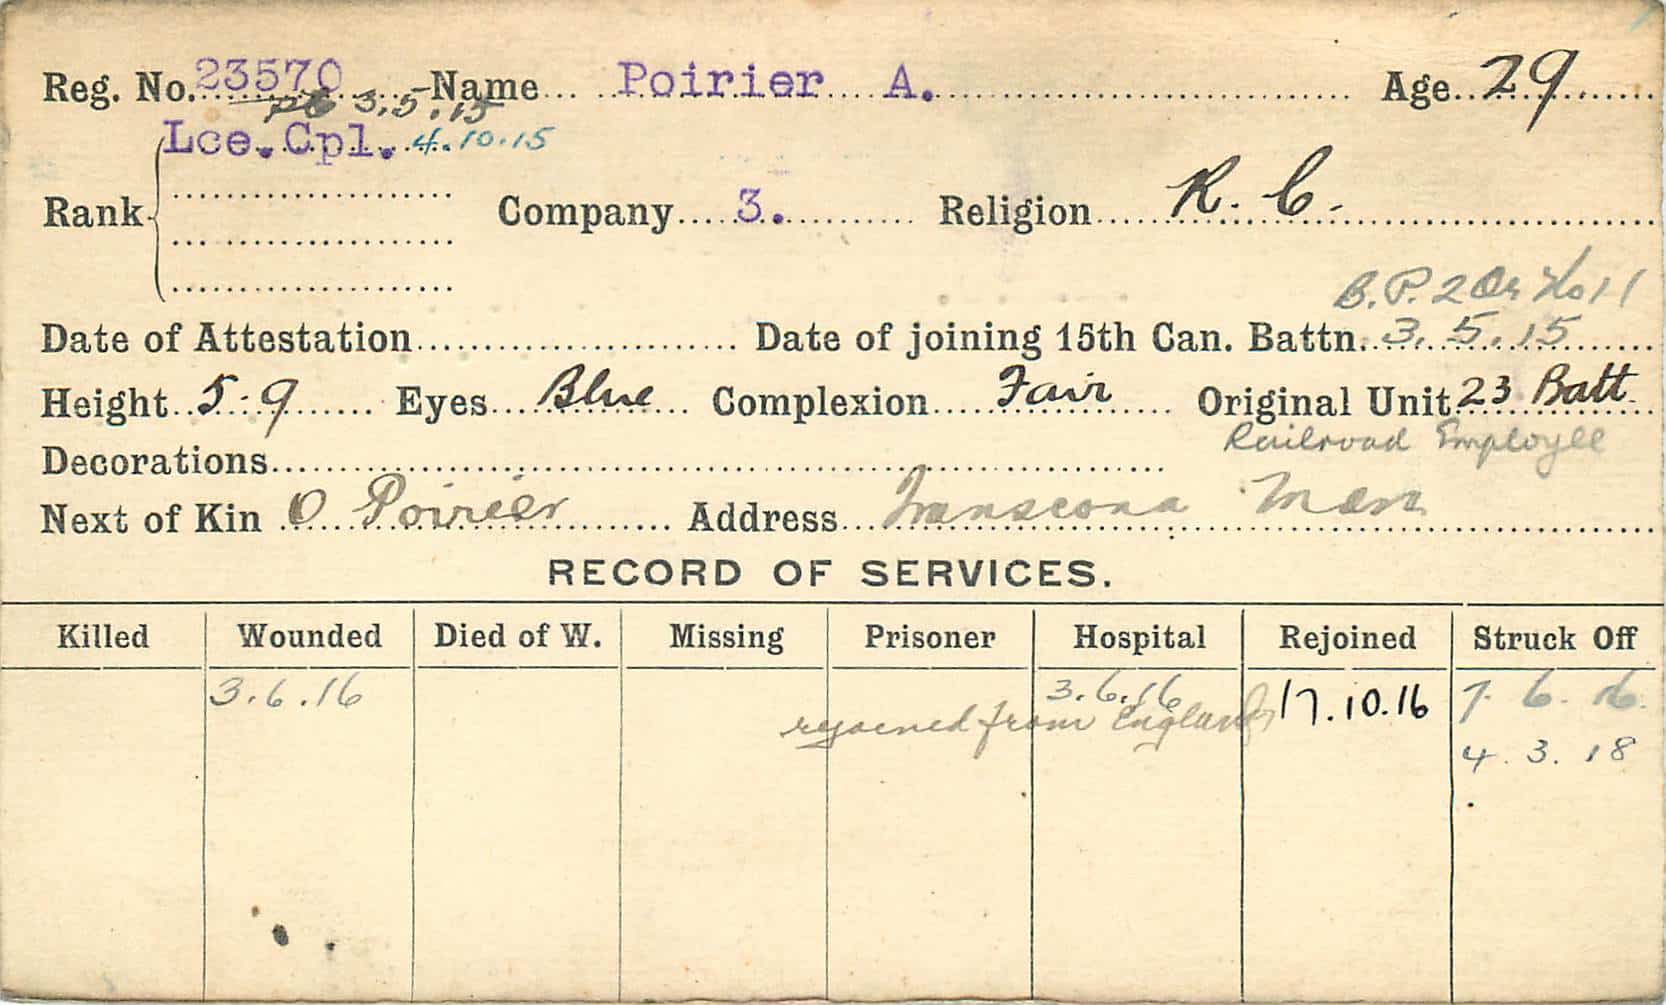 Reg. No. 23570 Name Poirier A. Age 29
pte 3.5.15
Lce. Cpl. 4.10.15
Rank Company 3. Religion R. C.
B.P. 2 No 11
Date of Attestation Date of joining 15th Can. Battn. 3.5.15
Height 5-9 Eyes Blue Complexion Fair Original Unit 23 Batt.
Railroad Employee
Decorations
Next of Kin O Poirier Address Transcona Man
RECORD OF SERVICES.
Killed Wounded Died of W. Missing Prisoner Hospital Rejoined Struck Off
3.6.16 3.6.16 17.10.16 7.6.16.
rejoined from England
4.3.18